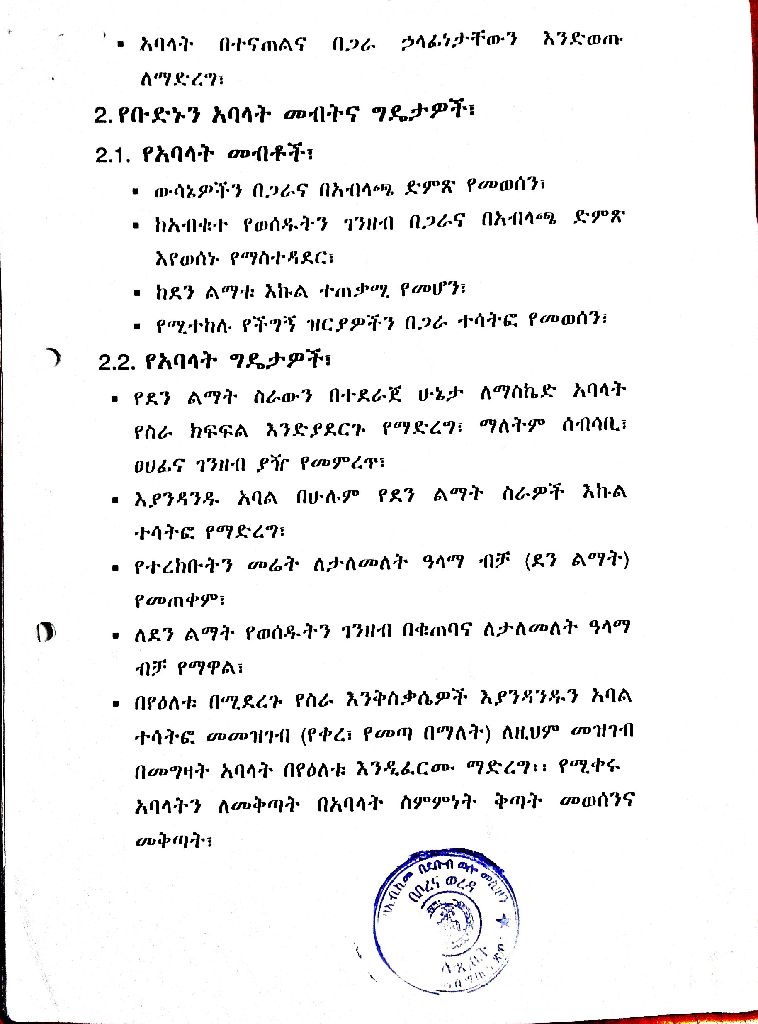 ▪ አባላት በተናጠልና በጋራ ኃላፊነታቸውን እንድወጡ
ለማድረግ፣
2. የቡድኑን አባላት መብትና ግዴታዎች፣
2.1. የአባላት መብቶች፣
▪ ውሳኔዎችን በጋራና በአብላጫ ድምጽ የመወሰን፣
▪ ከአብቁተ የወሰዱትን ገንዘብ በጋራና በአብላጫ ድምጽ
እየወሰኑ የማስተዳደር፣
▪ ከደን ልማቱ እኩል ተጠቃሚ የመሆን፣
▪ የሚተከሉ የችግኝ ዝርያዎችን በጋራ ተሳትፎ የመወሰን፣
2.2. የአባላት ግዴታዎች፣
▪ የደን ልማት ስራውን በተደራጀ ሁኔታ ለማስኬድ አባላት
የስራ ክፍፍል እንድያደርጉ የማድረግ፣ ማለትም ሰብሳቢ፣
ፀሀፊና ገንዘብ ያዥ የመምረጥ፣
▪ እያንዳንዱ አባል በሁሉም የደን ልማት ስራዎች እኩል
ተሳትፎ የማድረግ፣
▪ የተረከቡትን መሬት ለታለመለት ዓላማ ብቻ (ደን ልማት)
የመጠቀም፣
▪ ለደን ልማት የወሰዱትን ገንዘብ በቁጠባና ለታለመለት ዓላማ
ብቻ የማዋል፣
▪ በየዕለቱ በሚደረጉ የስራ እንቅስቃሴዎች እያንዳንዱን አባል
ተሳትፎ መመዝገብ (የቀረ፣ የመጣ በማለት) ለዚህም መዝገብ
በመግዛት አባላት በየዕለቱ እንዲፈርሙ ማድረግ፡፡ የሚቀሩ
አባላትን ለመቅጣት በአባላት ስምምነት ቅጣት መወሰንና
መቅጣት፣
በደቡብ ወሎ
ወረዳ